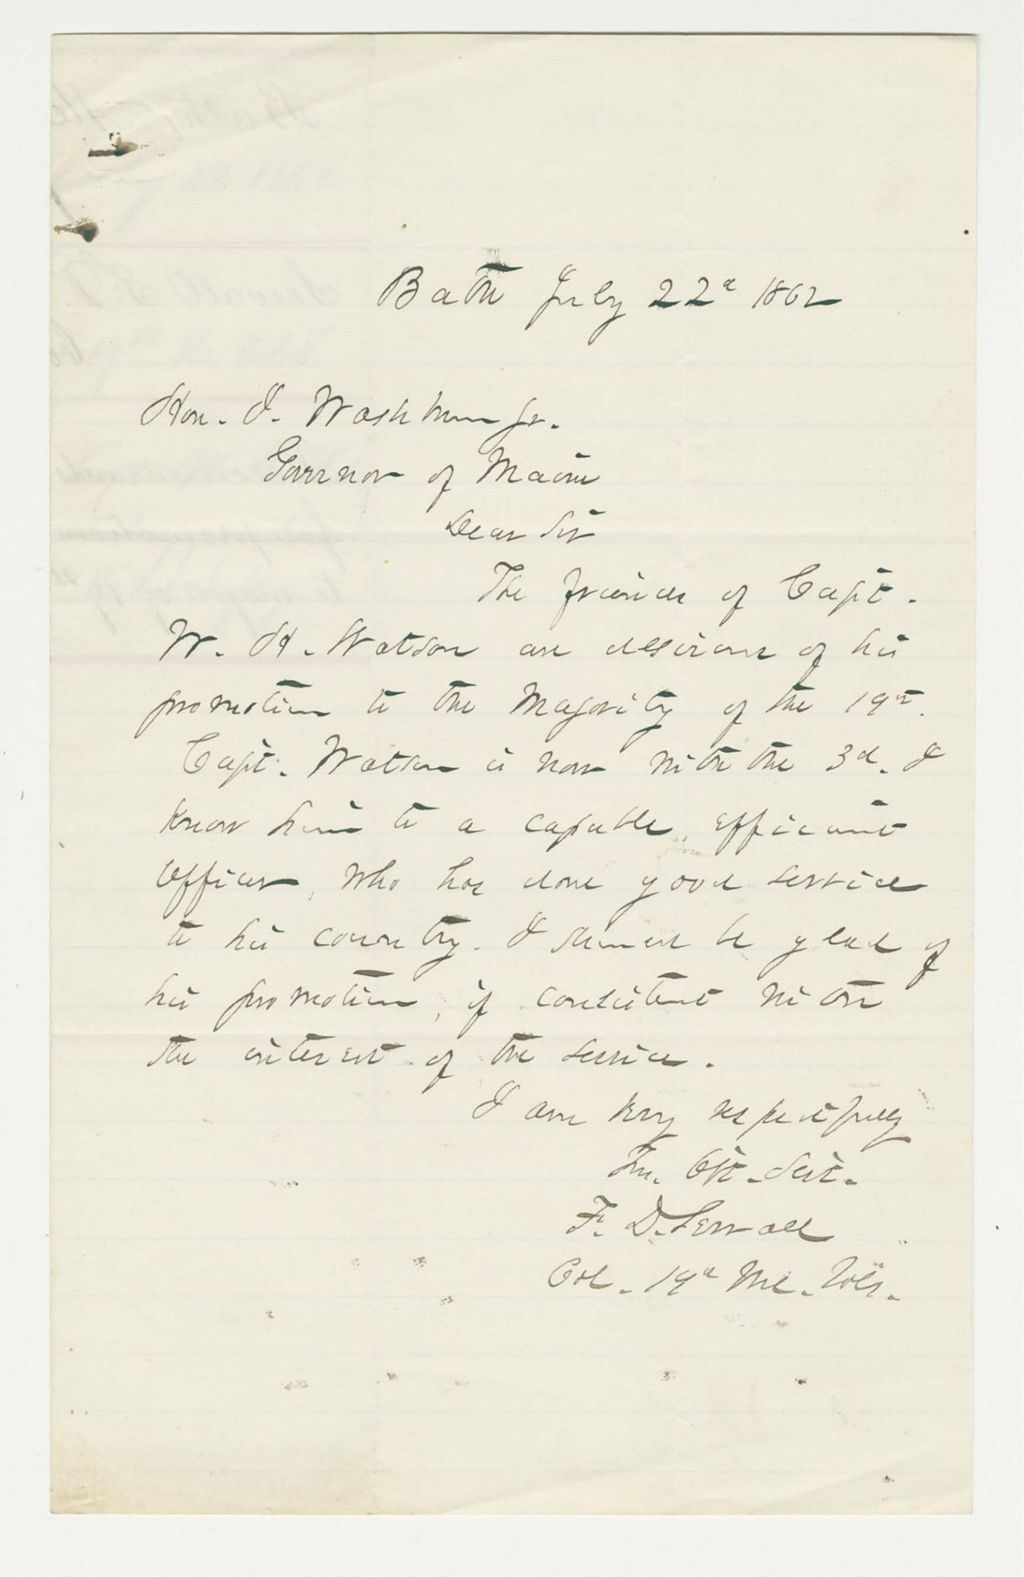 Bath July 22d 1862
Hon. I. Washburn Jr.
Governor of Maine
Dear Sir
The friends of Capt.
W. H. Watson are desirous of his
promotion to the Majority of the 19th.
Capt. Watson is now with the 3d. I
know him to a capable, efficient
officer, who has done good service
to his country. I should be glad of
his promotion, if consistent with
the interest of the service.
I am very respectfully
Yr. Obt. Svt.
F. D. Sewall
Col. 19th Me. Vols.